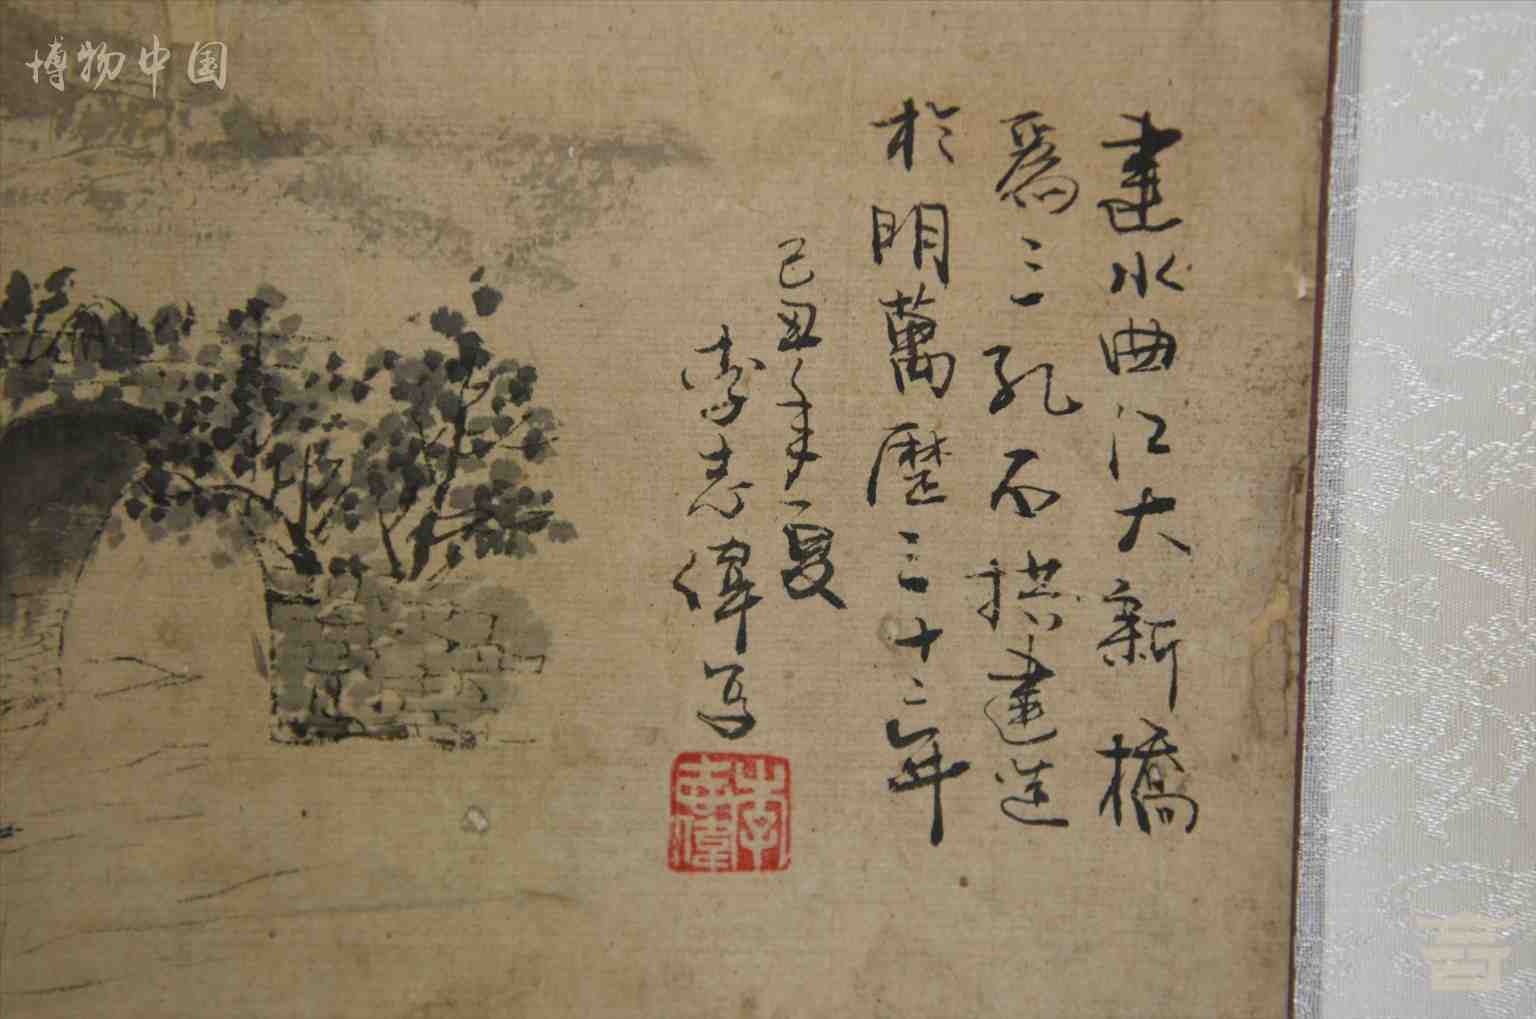 博物中国
建水曲江大新橋
爲三孔石拱建造
於明萬歷三十二年
己丑年夏
李志偉写
李志偉